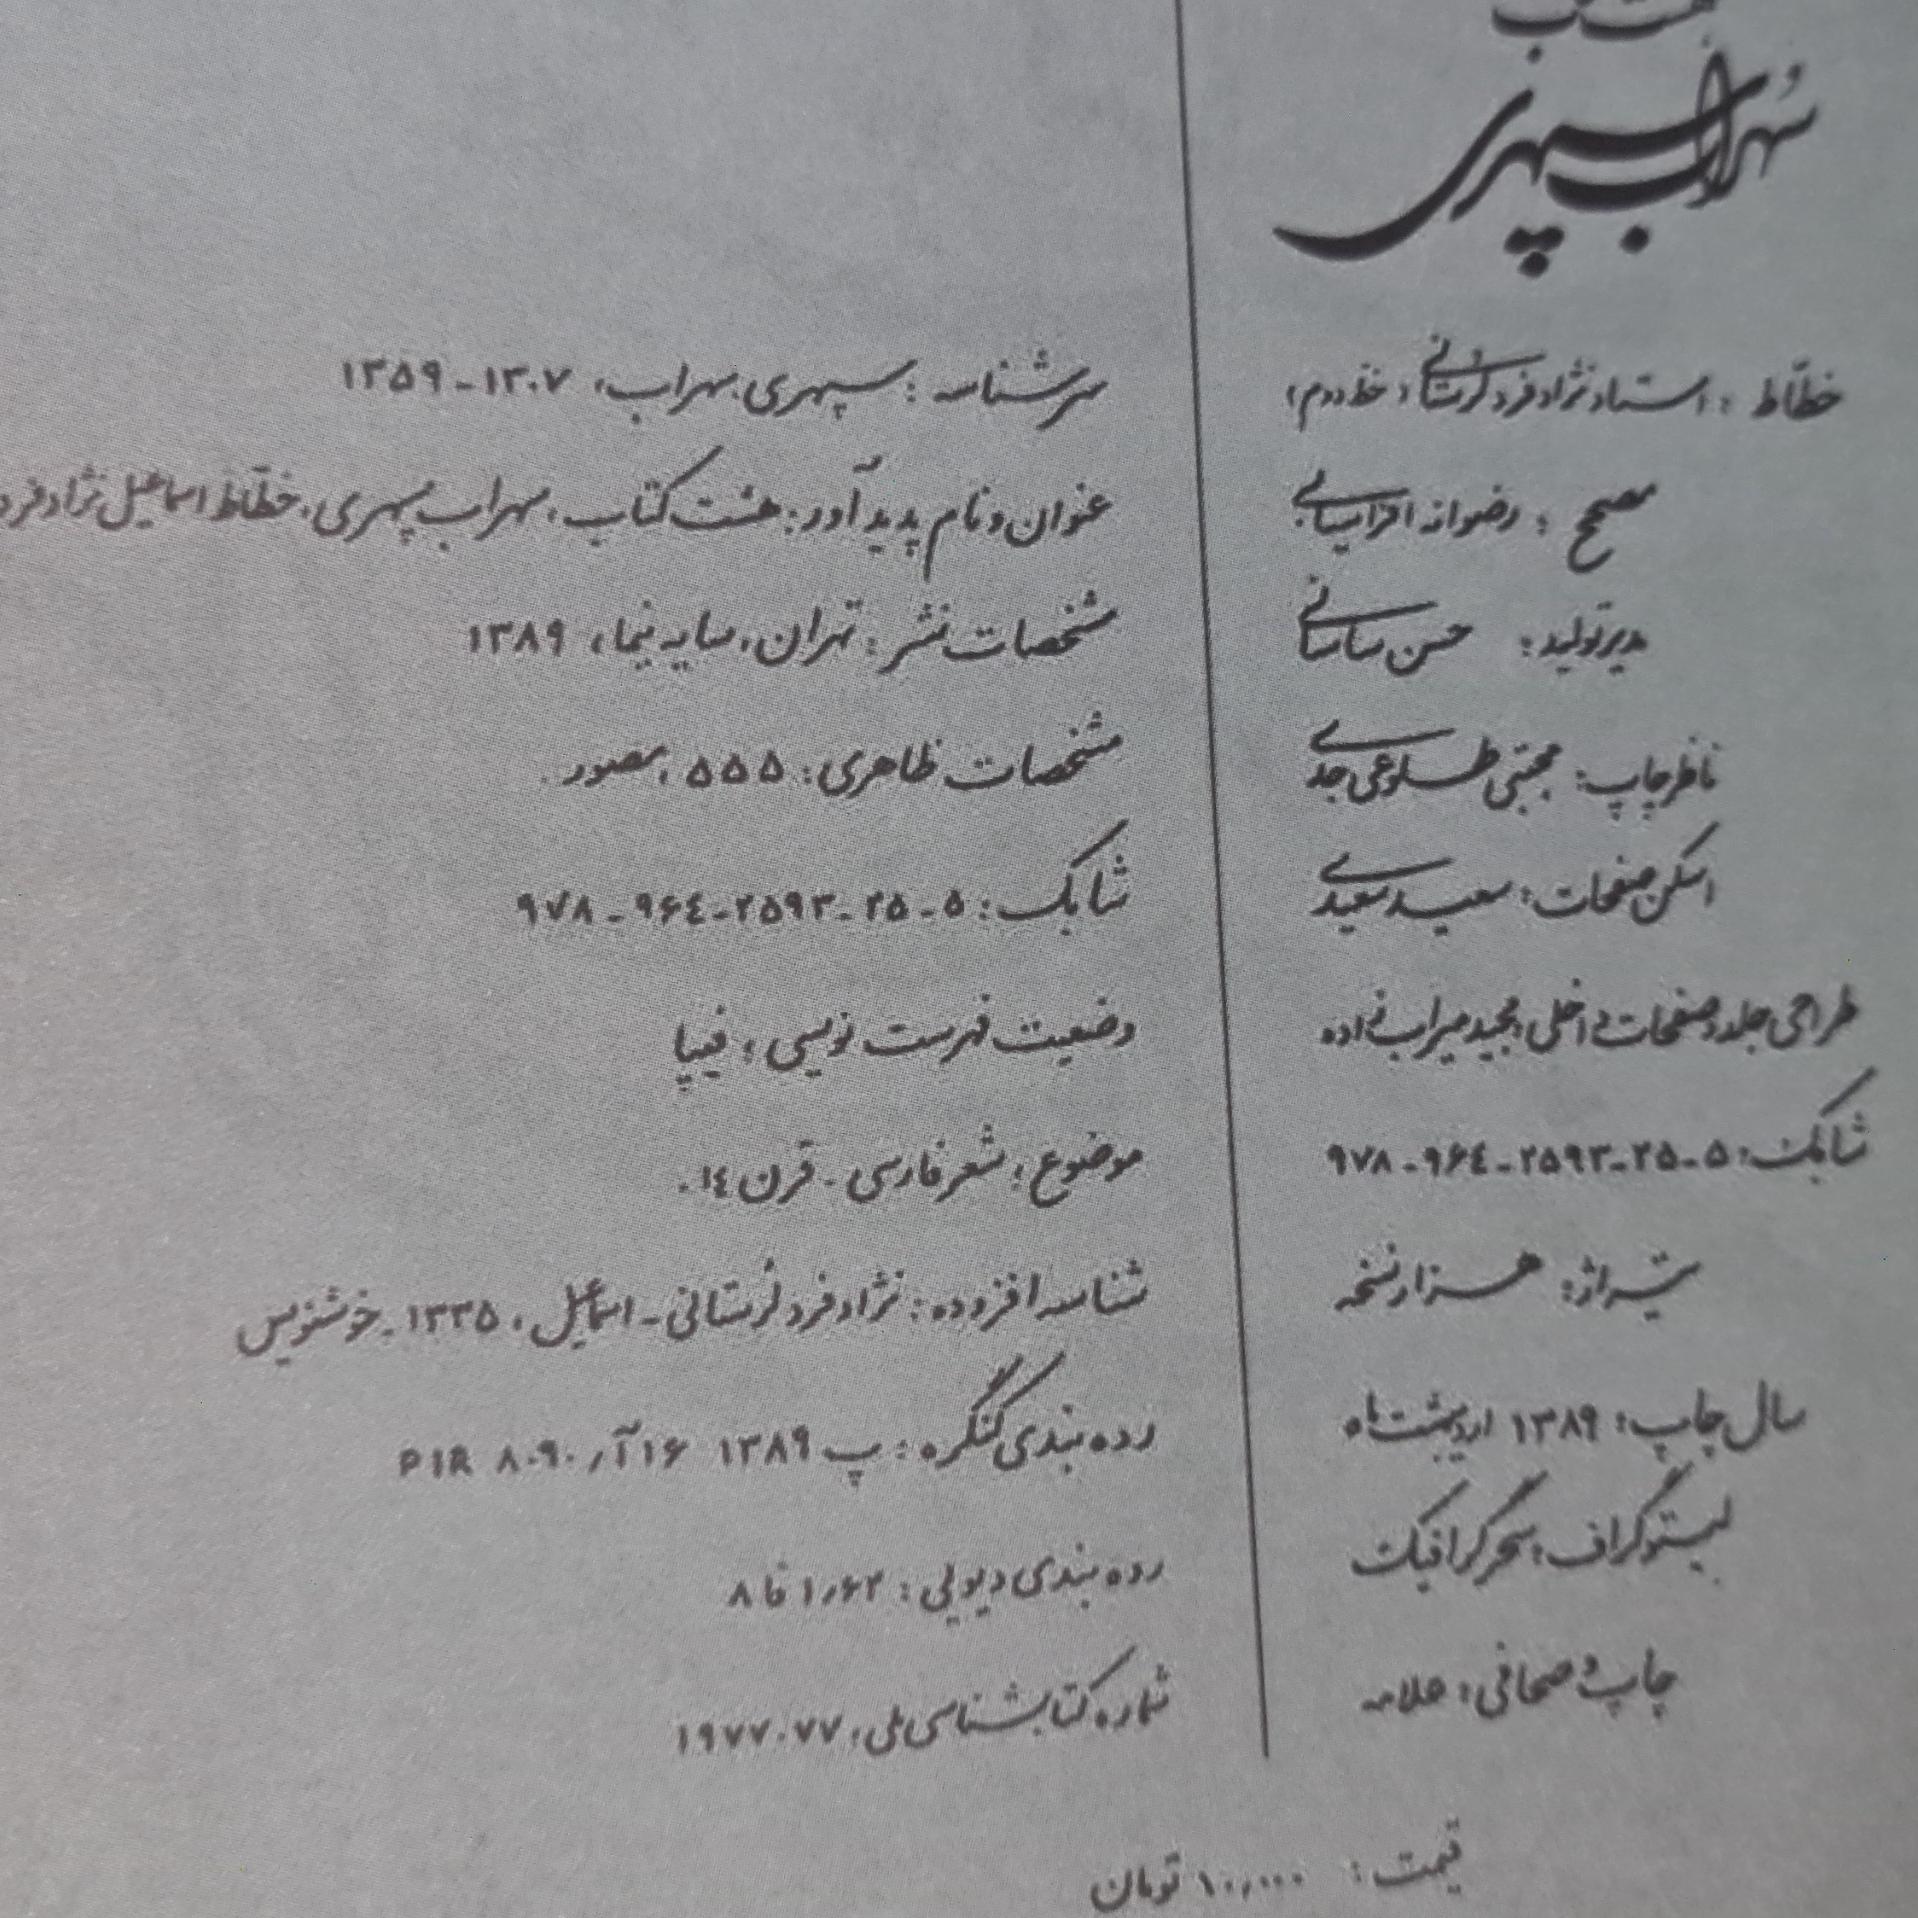 هشت کتاب
سُهراب سپهری
خطّاط : استاد نژادفرد لرستانی (خط دوم)
مصحح : رضوانه افراسیابی
مدیر تولید : حسن ساسانی
ناظر چاپ : مجتبی طلوعی جدی
اسکن صفحات : سعید سعیدی
طراحی جلد و صفحات داخلی : مجید میراب زاده
شابک : ۵-۲۵-۲۵۹۳-۹۶٤-۹۷۸
تیراژ : هزار نسخه
سال چاپ : ۱۳۸۹ اردیبهشت ماه
لیتوگراف : سحر گرافیک
چاپ و صحافی : علامه
سرشناسه : سپهری، سهراب، ۱۳۰۷-۱۳۵۹
عنوان و نام پدیدآور : هشت کتاب، سهراب سپهری، خطّاط اسماعیل نژادفرد
مشخصات نشر : تهران، سایه نیما، ۱۳۸۹
مشخصات ظاهری : ۵۵۵، مصور.
شابک : ۵-۲۵-۲۵۹۳-۹۶٤-۹۷۸
وضعیت فهرست نویسی : فیپا
موضوع : شعر فارسی - قرن ۱٤.
شناسه افزوده : نژادفرد لُرستانی - اسماعیل، ۱۳۳۵ - خوشنویس
رده بندی کنگره : پ ۱۳۸۹ ۱۶آ/ ۸۰۹۰ PIR
رده بندی دیویی : ۱/۶۲ فا ۸
شماره کتابشناسی ملی : ۱۹۷۷۰۷۷
قیمت : ۱۰/۰۰۰ تومان